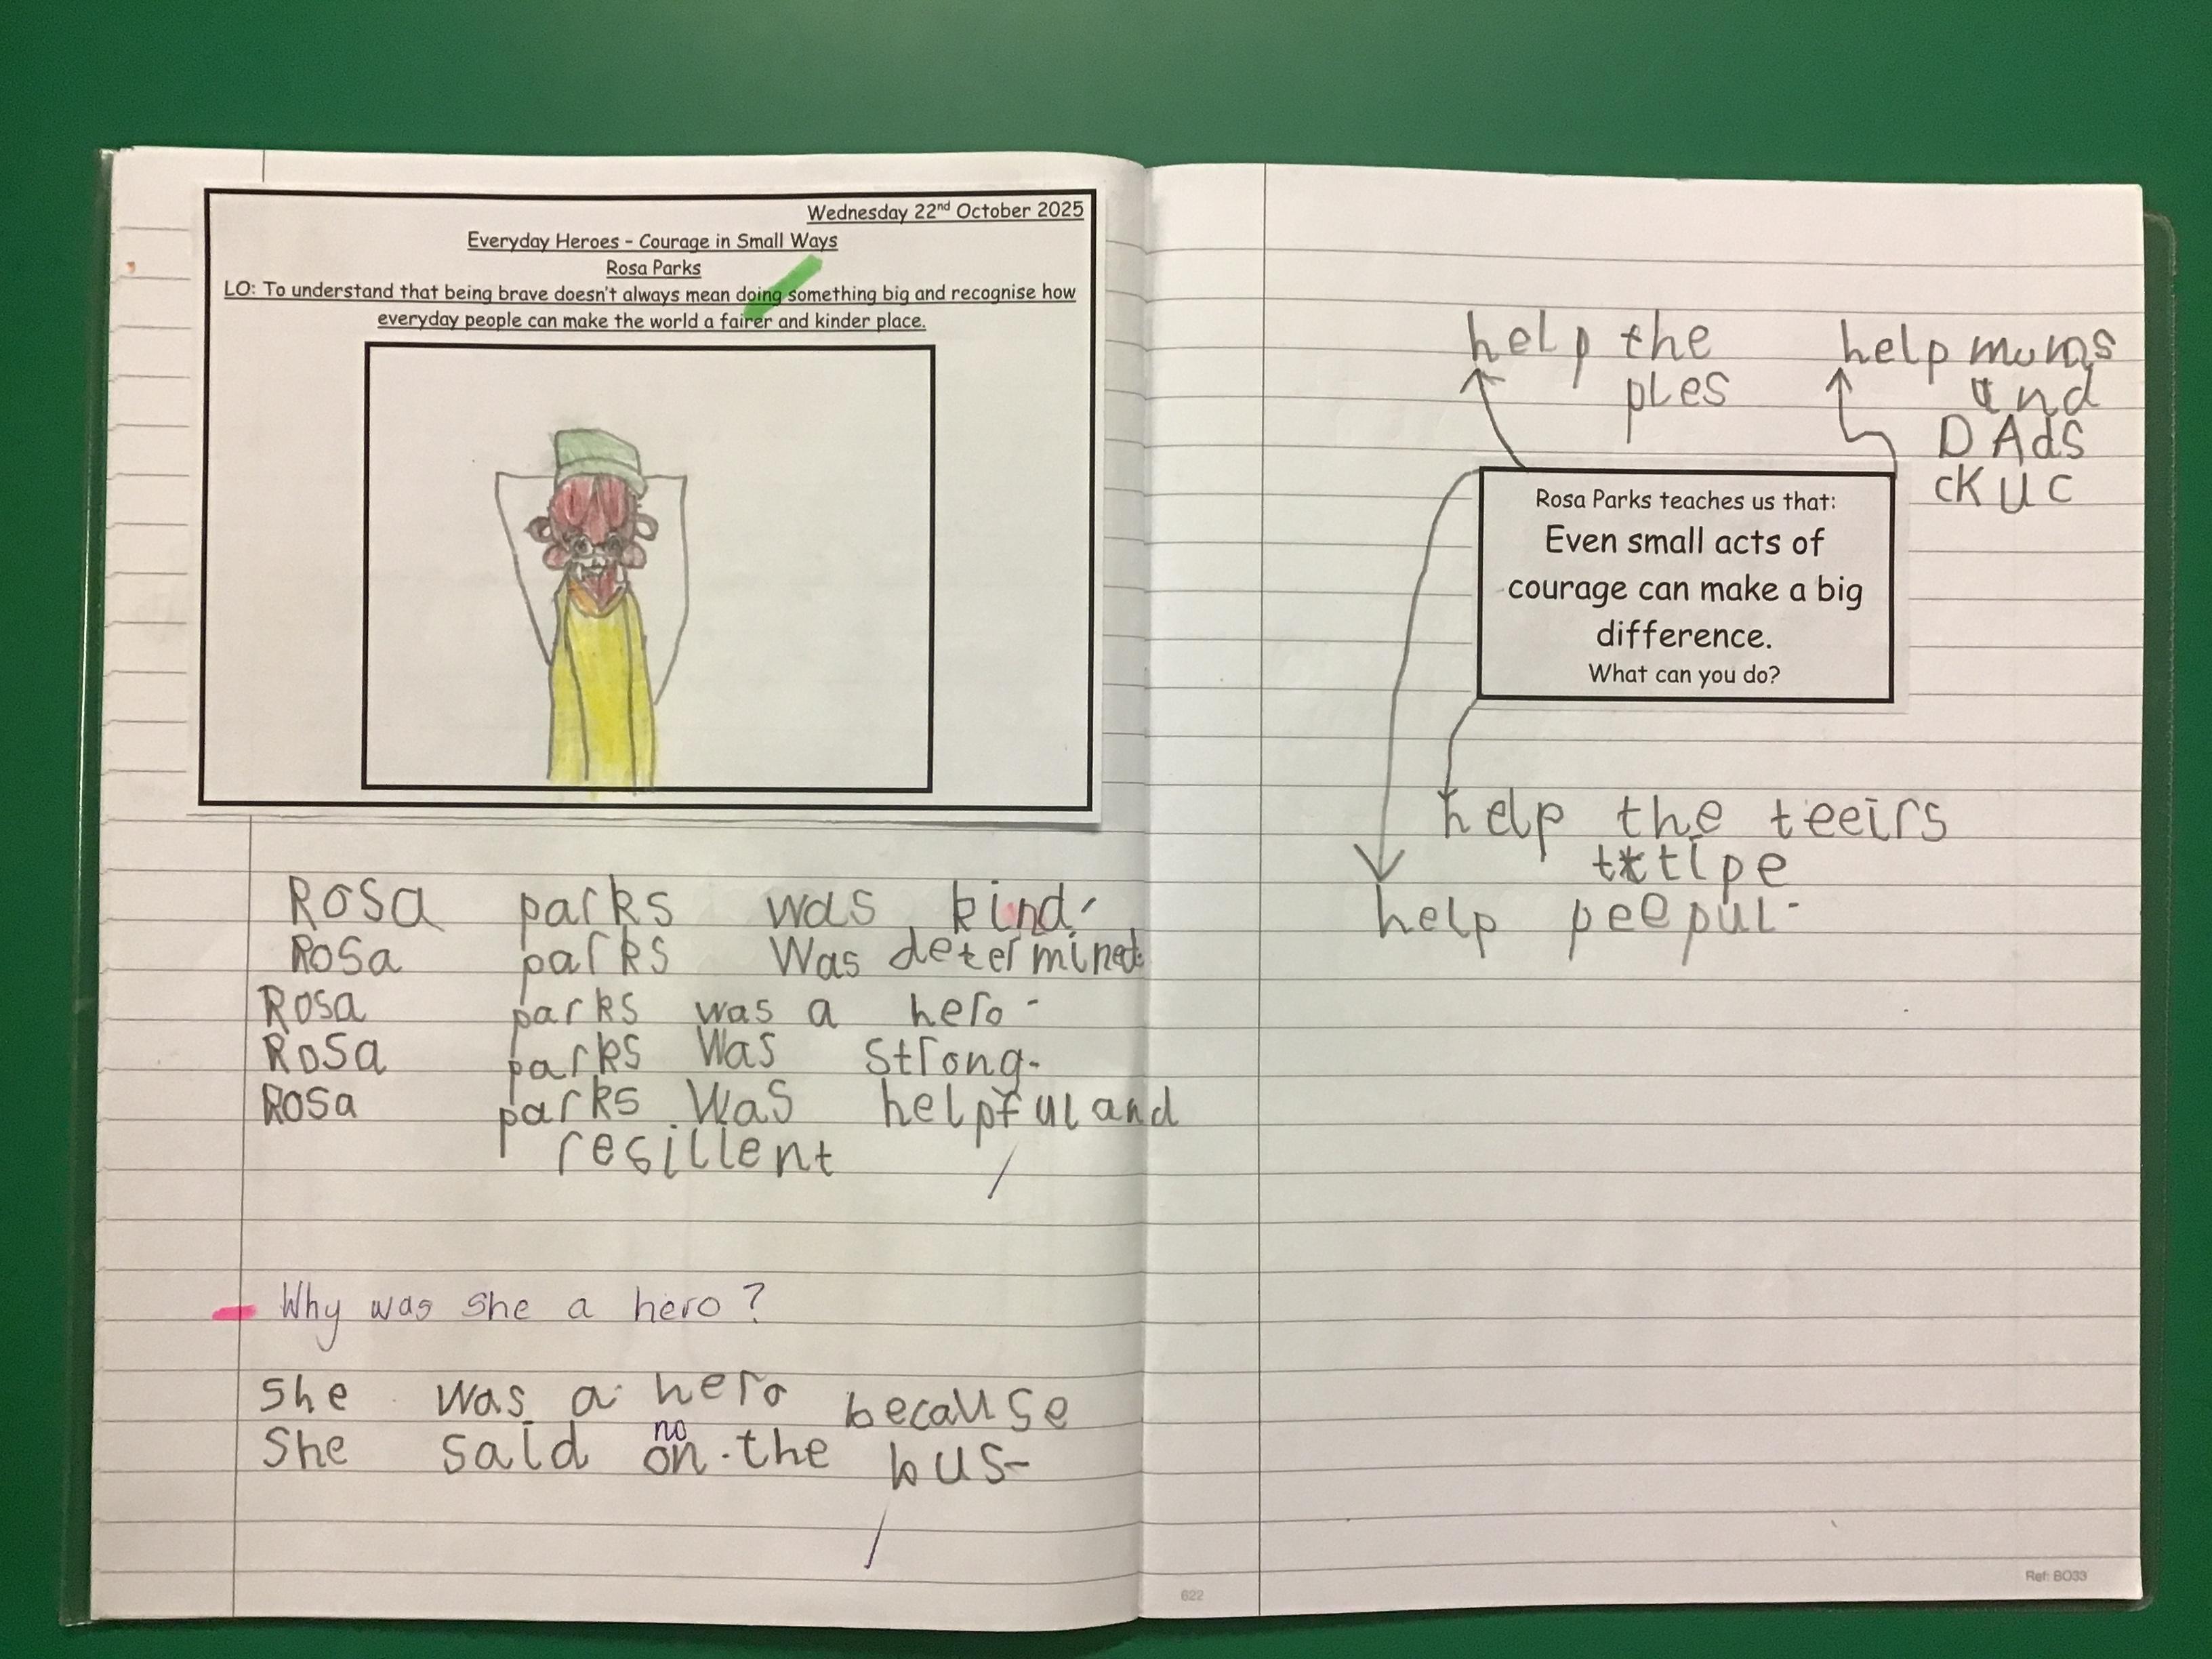 Wednesday 22nd October 2025
Everyday Heroes - Courage in Small Ways
Rosa Parks
LO: To understand that being brave doesn't always mean doing something big and recognise how
everyday people can make the world a fairer and kinder place.
Rosa parks was kind.
Rosa parks was determined.
Rosa parks was a hero.
Rosa parks was strong.
Rosa parks was helpful and
resillent
Why was she a hero?
She was a hero because
no
She said on the bus.
622
help the
ples
help mums
and
DAds
cKUc
Rosa Parks teaches us that:
Even small acts of
courage can make a big
difference.
What can you do?
help the teeirs
help peepul.
Ref: BO33